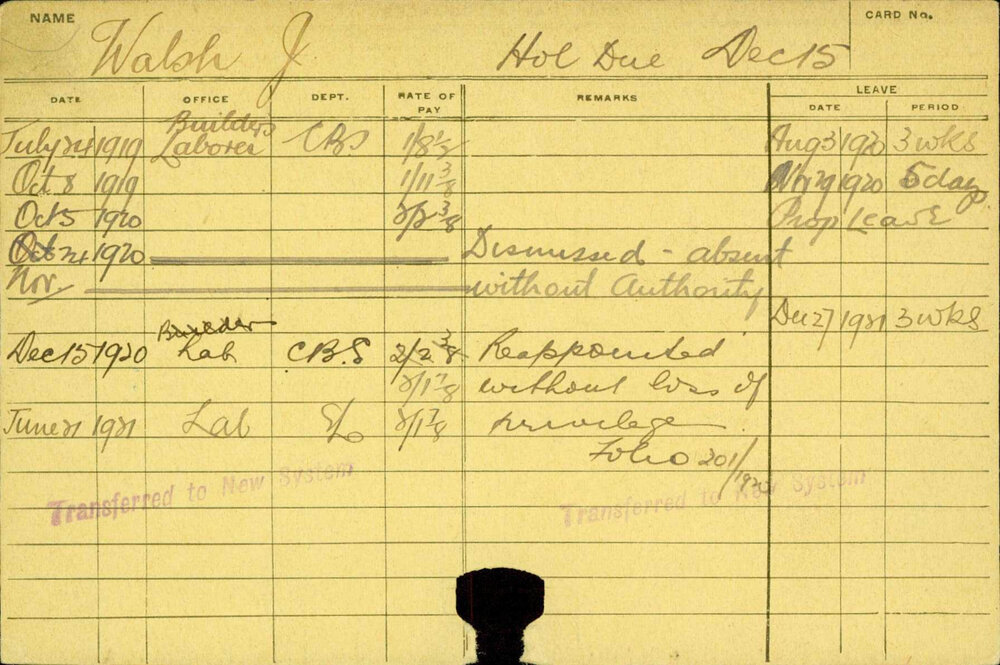 NAME
CARD No.
Walsh J
Hol Due Dec 15
DATE OFFICE DEPT. RATE OF PAY REMARKS LEAVE
DATE PERIOD
Builder's
July 24 1919 Laborer CBS 1/8 1/2 Aug 3 1920 3 wks
Oct 8 1919 1/11 3/8 Nov 29 1920 5 days
Oct 5 1920 2/2 3/8 Prop Leave
Oct 24 1920 Dismissed - absent
Nov. without Authority
Dec 27 1921 3 wks
Builder
Dec 15 1920 Lab C.B.S 2/2 3/8 Reappointed
2/1 7/8 without loss of
June 21 1921 Lab 2/1 7/8 privilege
Folio 201/1920
Transferred to New System
Transferred to New System